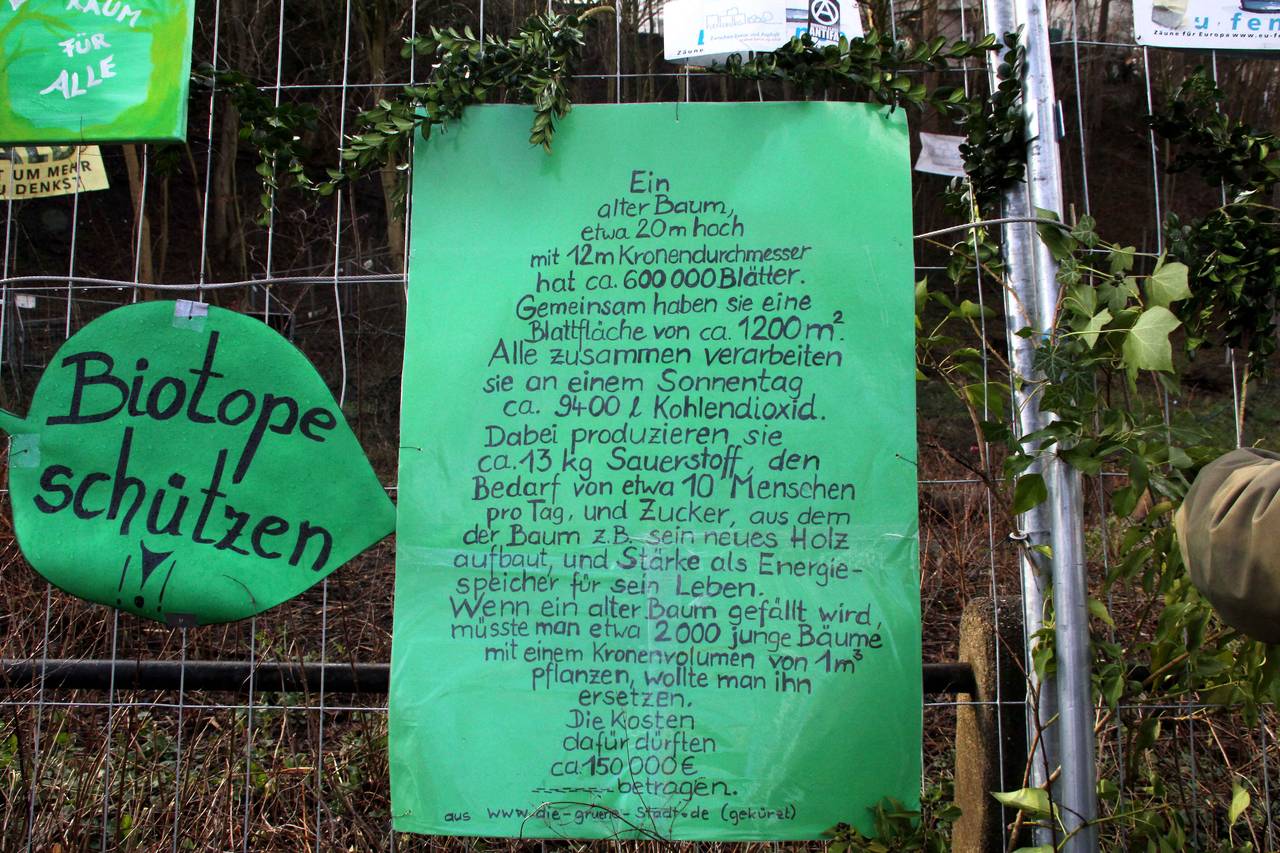 RAUM
FÜR
ALLE
T UM MEHR
U DENKST
Zäune
ANTIFA
u fen
Zäune für Europa www.eu-f
Biotope
schützen
!!!
Ein
alter Baum,
etwa 20m hoch
mit 12m Kronendurchmesser
hat ca. 600 000 Blätter.
Gemeinsam haben sie eine
Blattfläche von ca. 1200 m².
Alle zusammen verarbeiten
sie an einem Sonnentag
ca. 9400 l Kohlendioxid.
Dabei produzieren sie
ca. 13 kg Sauerstoff, den
Bedarf von etwa 10 Menschen
pro Tag, und Zucker, aus dem
der Baum z.B. sein neues Holz
aufbaut, und Stärke als Energie-
speicher für sein Leben.
Wenn ein alter Baum gefällt wird,
müsste man etwa 2000 junge Bäume
mit einem Kronenvolumen von 1m³
pflanzen, wollte man ihn
ersetzen.
Die Kosten
dafür dürften
ca. 150 000 €
betragen.
aus www.die-gruene-stadt.de (gekürzt)